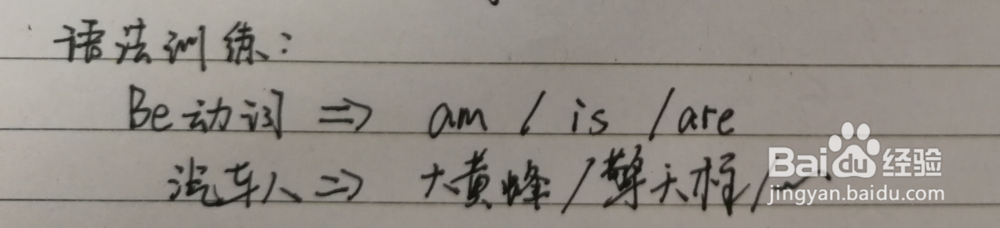 语法训练:
Be动词 => am / is / are
汽车人 => 大黄蜂 / 擎天柱 / ...
Baidu经验
jingyan.baidu.com